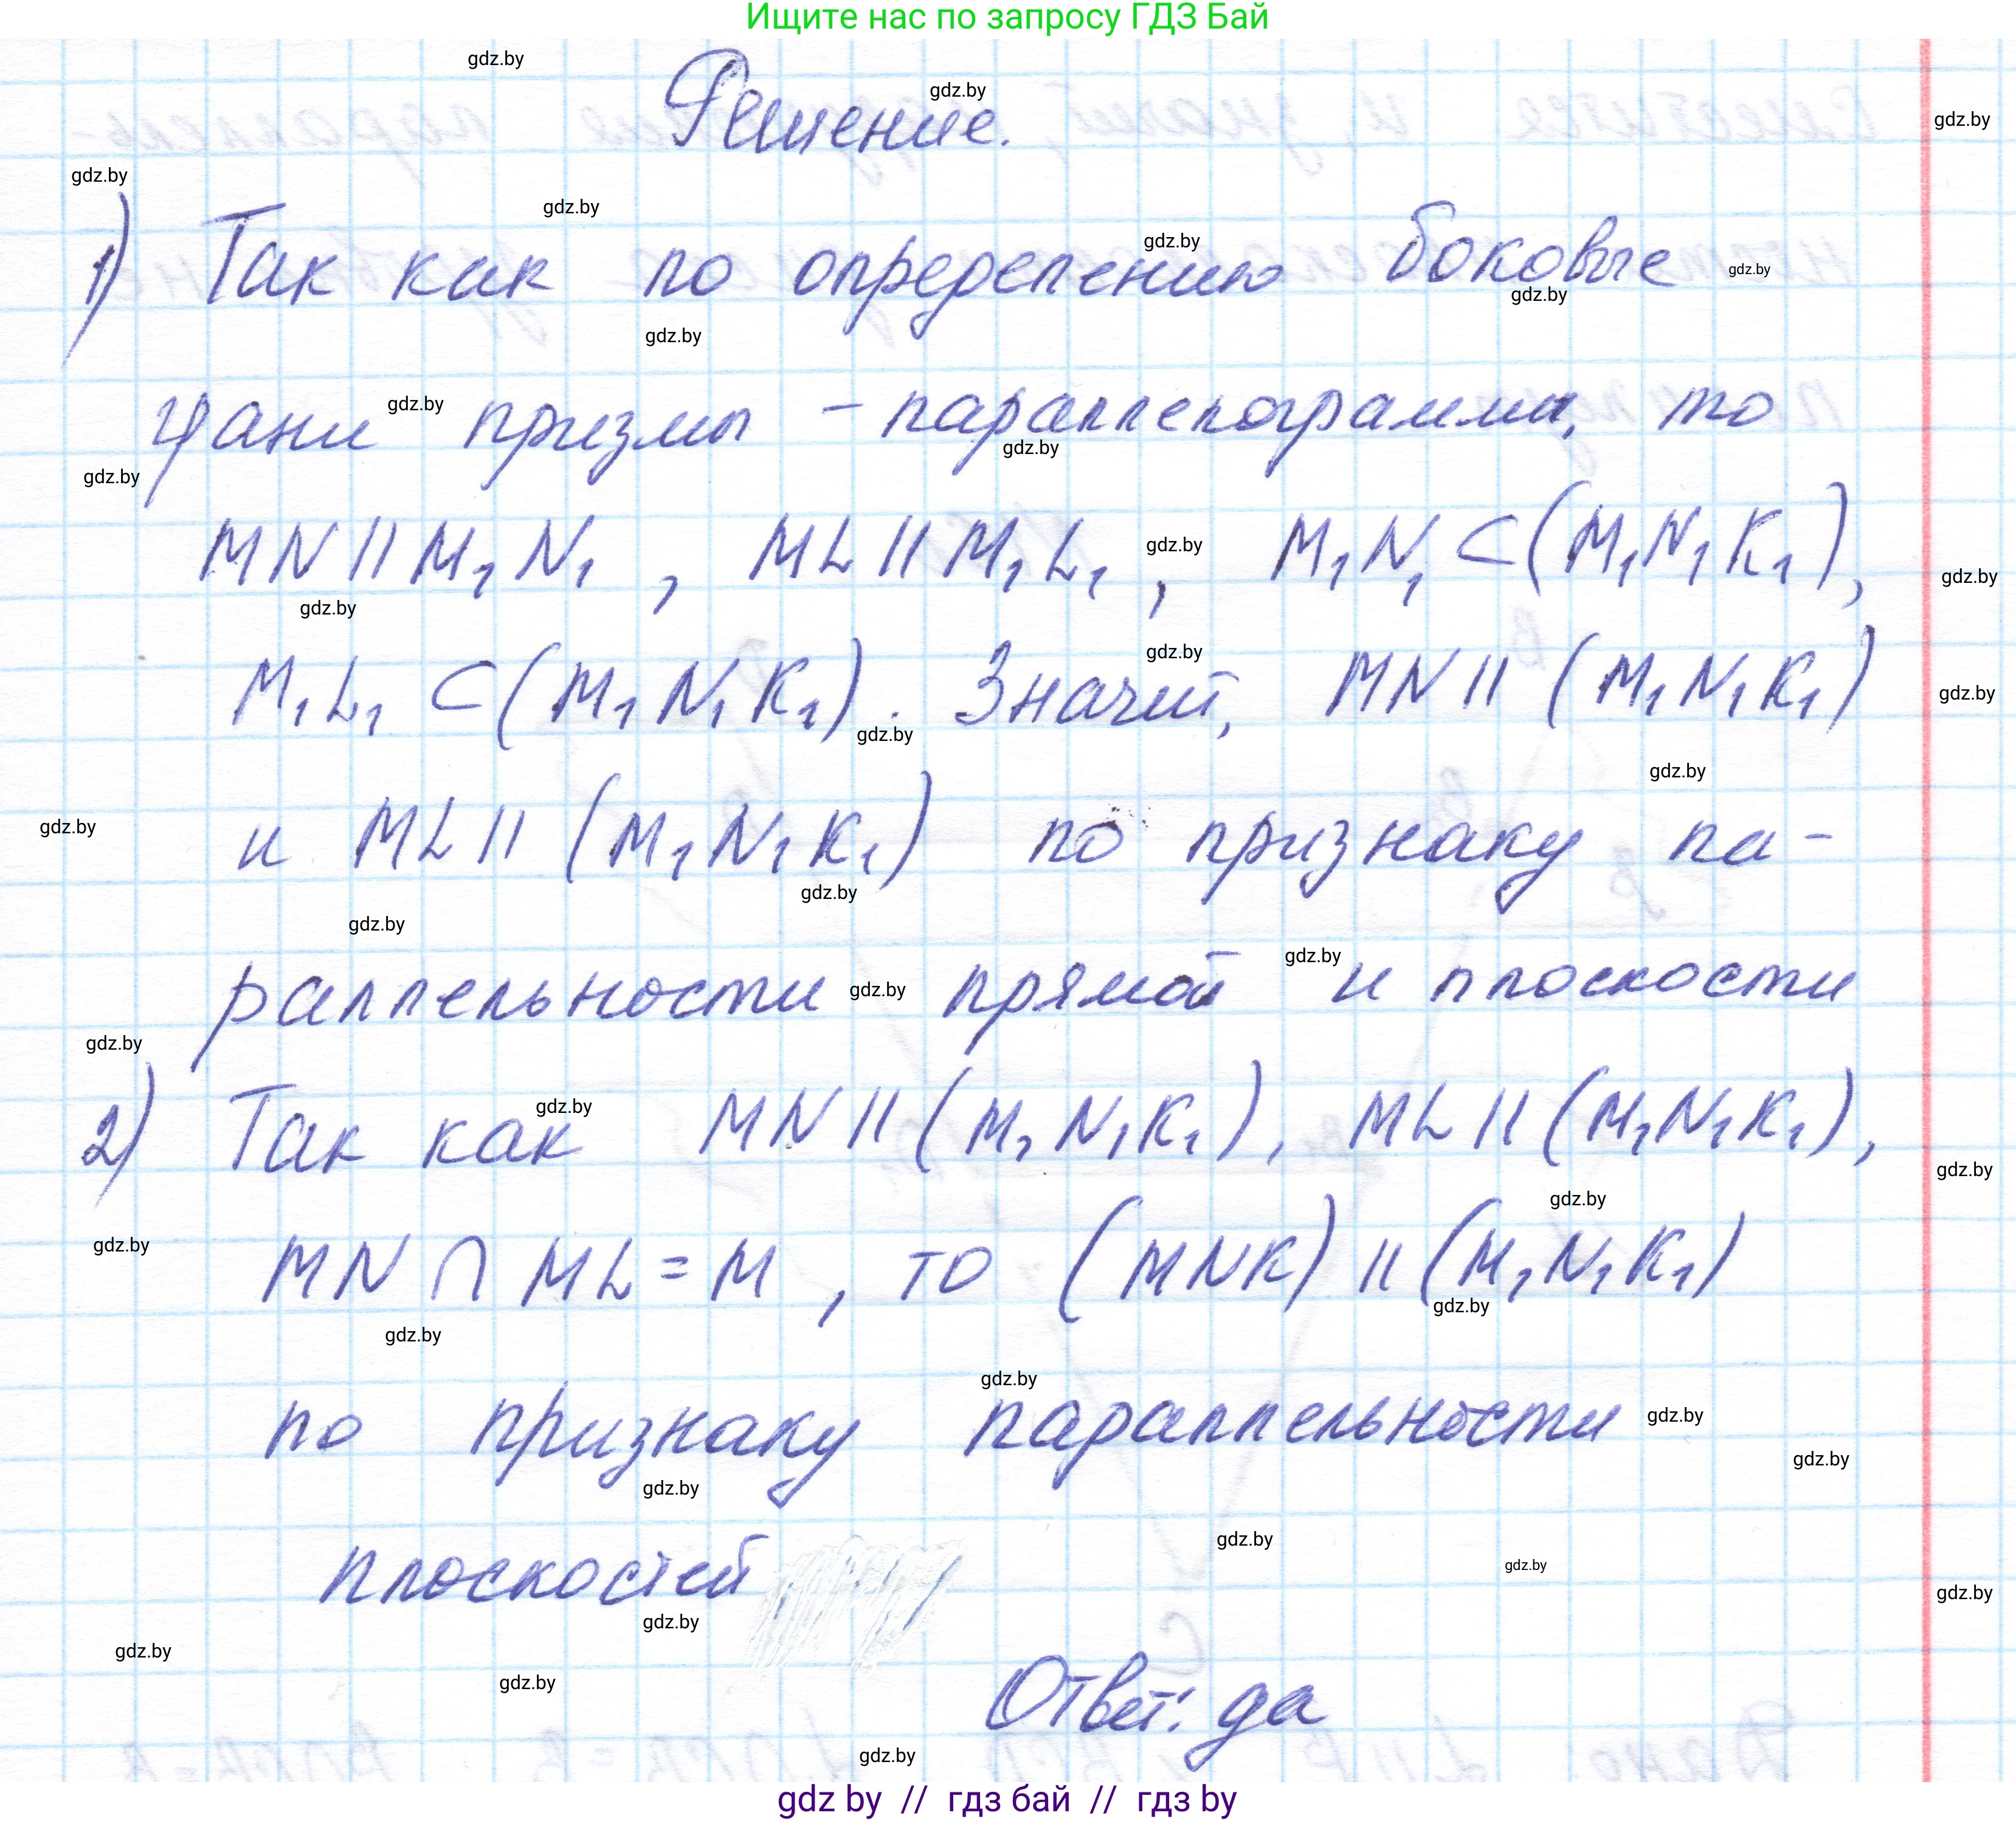 Ищите нас по запросу ГДЗ Бай
Решение.
1) Так как по определению боковые
грани призмы – параллелограммы, то
MN || M₁N₁ , ML || M₁L₁ , M₁N₁ ⊂ (M₁N₁K₁),
M₁L₁ ⊂ (M₁N₁K₁). Значит, MN || (M₁N₁K₁)
и ML || (M₁N₁K₁) по признаку па-
раллельности прямой и плоскости
2) Так как MN || (M₁N₁K₁), ML || (M₁N₁K₁),
MN ∩ ML = M , то (MNK) || (M₁N₁K₁)
по признаку параллельности
плоскостей
Ответ: да
gdz by // гдз бай // гдз by